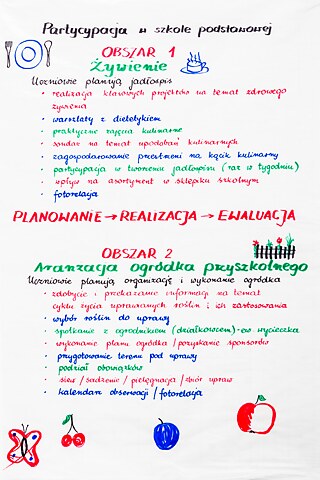 Partycypacja w szkole podstawowej
OBSZAR 1
Żywienie
Uczniowie planują jadłospis
• realizacja klasowych projektów na temat zdrowego
żywienia
• warsztaty z dietetykiem
• praktyczne zajęcia kulinarne
• sondaż na temat upodobań kulinarnych
• zagospodarowanie przestrzeni na kącik kulinarny
• partycypacja w tworzeniu jadłospisu (raz w tygodniu)
• wpływ na asortyment w sklepiku szkolnym
• fotorelacja
PLANOWANIE → REALIZACJA → EWALUACJA
OBSZAR 2
Aranżacja ogródka przyszkolnego
Uczniowie planują organizację i wykonanie ogródka
• zdobycie i przekazanie informacji na temat
cyklu życia uprawianych roślin i ich zastosowania
• wybór roślin do uprawy
• spotkanie z ogrodnikiem (działkowcem) - ew. wycieczka
• wykonanie planu ogródka / pozyskanie sponsorów
• przygotowanie terenu pod uprawy
• podział obowiązków
• siew / sadzenie / pielęgnacja / zbiór upraw
• kalendarz obserwacji / fotorelacja